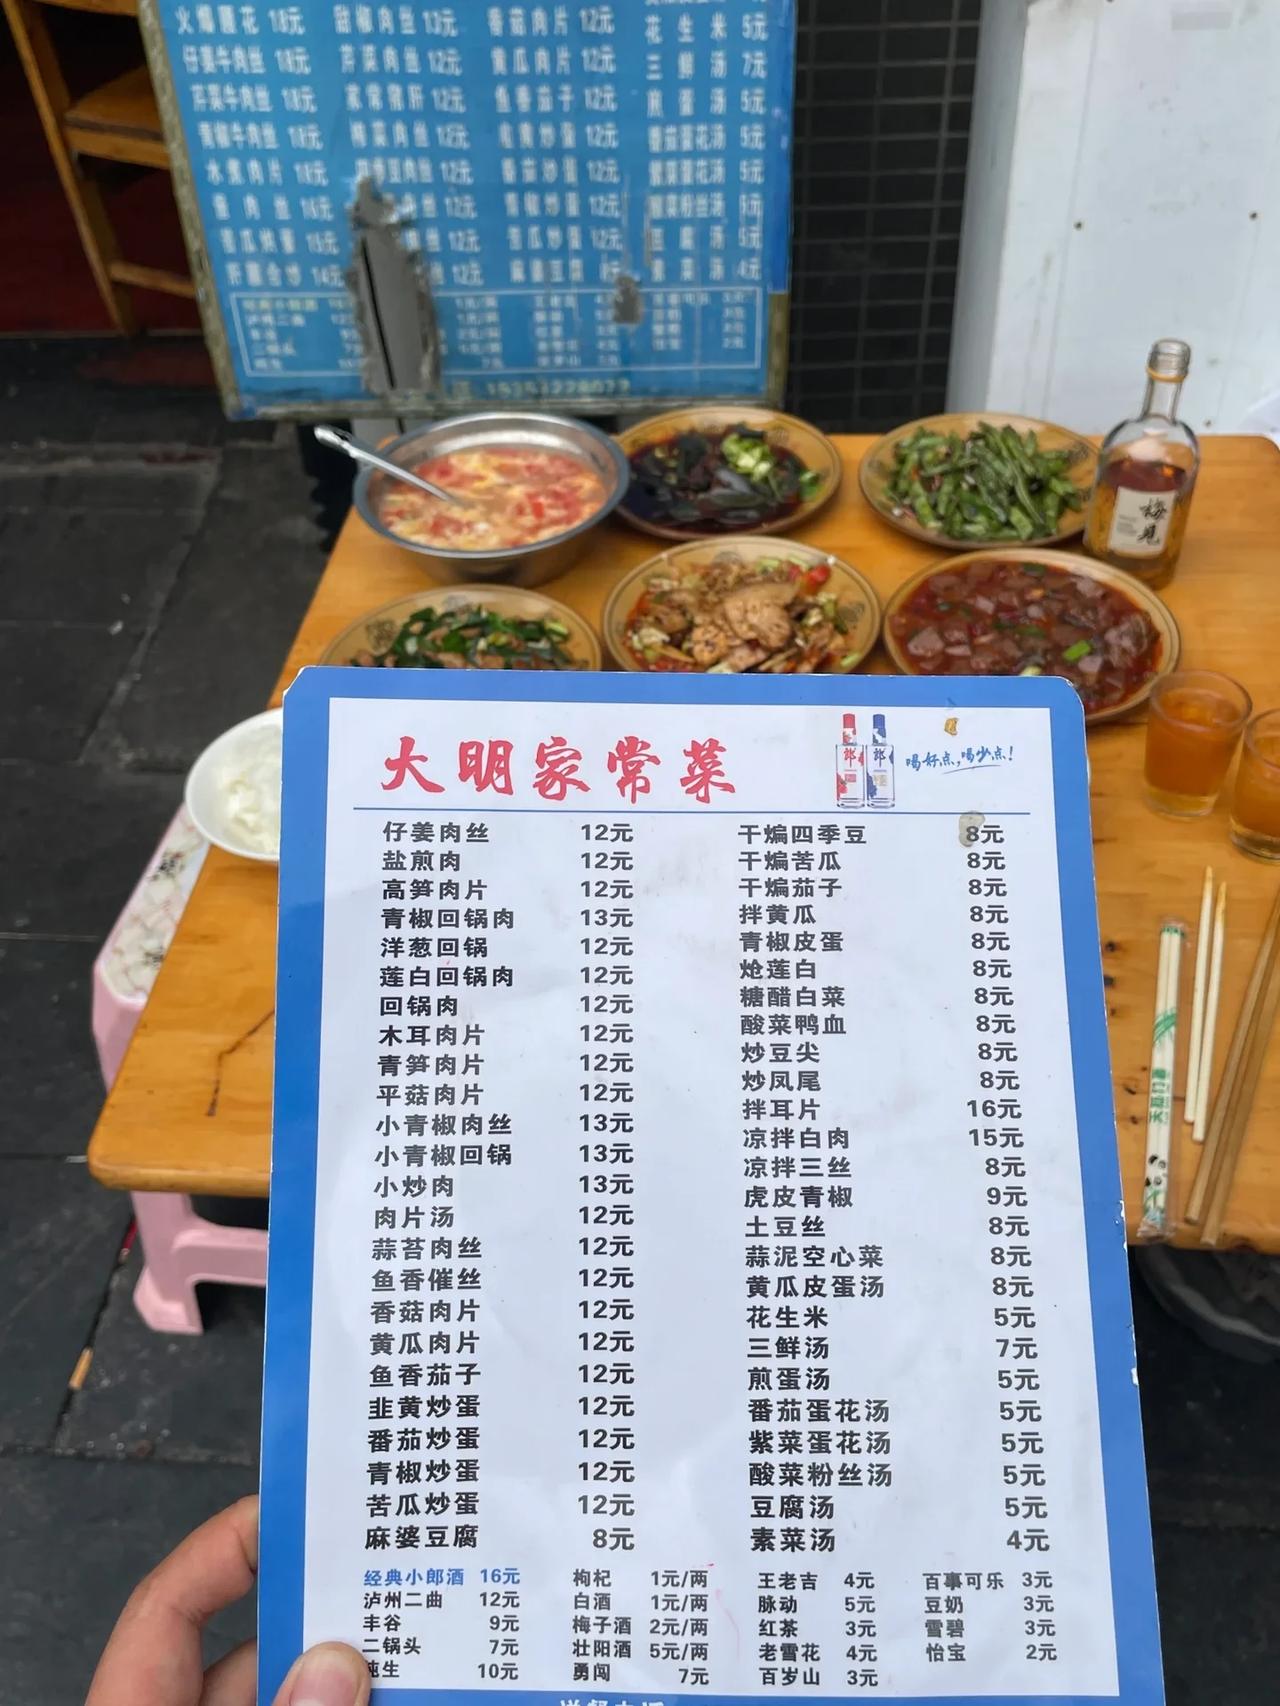 火爆腰花 18元 甜椒肉丝 13元 香菇肉片 12元 花生米 5元
仔姜牛肉丝 18元 芹菜肉丝 12元 黄瓜肉片 12元 三鲜汤 7元
芹菜牛肉丝 18元 家常猪肝 12元 鱼香茄子 12元 煎蛋汤 5元
黄椒牛肉丝 18元 榨菜肉丝 12元 韭黄炒蛋 12元 番茄蛋花汤 5元
水煮肉片 18元 12元 番茄炒蛋 12元 紫菜蛋花汤 5元
16元 丝 12元 青椒炒蛋 12元 酸菜粉丝汤 5元
15元 12元 苦瓜炒蛋 12元 豆腐汤 5元
肝腰合炒 14元 12元 麻婆豆腐 8元 素菜汤 4元
梅见
大明家常菜
郎 郎 喝好点,喝少点!
仔姜肉丝 12元 干煸四季豆 8元
盐煎肉 12元 干煸苦瓜 8元
高笋肉片 12元 干煸茄子 8元
青椒回锅肉 13元 拌黄瓜 8元
洋葱回锅 12元 青椒皮蛋 8元
莲白回锅肉 12元 炝莲白 8元
回锅肉 12元 糖醋白菜 8元
木耳肉片 12元 酸菜鸭血 8元
青笋肉片 12元 炒豆尖 8元
平菇肉片 12元 炒凤尾 8元
小青椒肉丝 13元 拌耳片 16元
小青椒回锅 13元 凉拌白肉 15元
小炒肉 13元 凉拌三丝 8元
肉片汤 12元 虎皮青椒 9元
蒜苔肉丝 12元 土豆丝 8元
鱼香催丝 12元 蒜泥空心菜 8元
香菇肉片 12元 黄瓜皮蛋汤 8元
黄瓜肉片 12元 花生米 5元
鱼香茄子 12元 三鲜汤 7元
韭黄炒蛋 12元 煎蛋汤 5元
番茄炒蛋 12元 番茄蛋花汤 5元
青椒炒蛋 12元 紫菜蛋花汤 5元
苦瓜炒蛋 12元 酸菜粉丝汤 5元
麻婆豆腐 8元 豆腐汤 5元
素菜汤 4元
经典小郎酒 16元 枸杞 1元/两 王老吉 4元 百事可乐 3元
泸州二曲 12元 白酒 1元/两 脉动 5元 豆奶 3元
丰谷 9元 梅子酒 2元/两 红茶 3元 雪碧 3元
二锅头 7元 壮阳酒 5元/两 老雪花 4元 怡宝 2元
纯生 10元 勇闯 7元 百岁山 3元